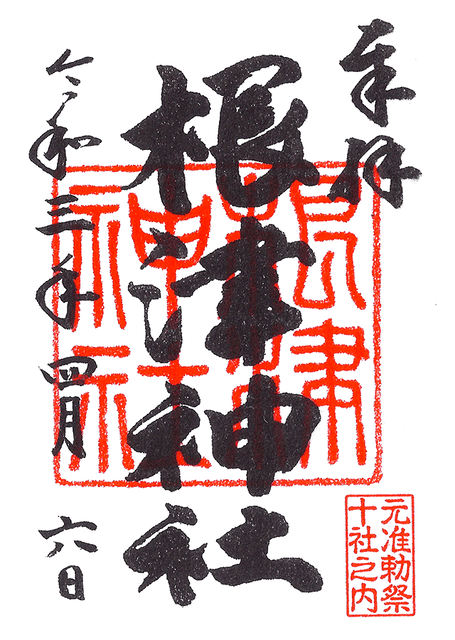 奉拝
根津神社
根津
神社
令和三年四月六日
元准勅祭
十社之内